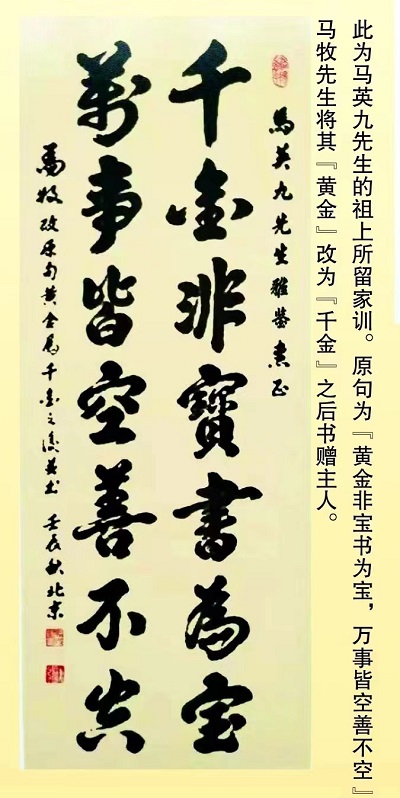 此为马英九先生的祖上所留家训。原句为『黄金非宝书为宝，万事皆空善不空』
马牧先生将其『黄金』改为『千金』之后书赠主人。
馬英九先生雅鉴惠正
千金非寶書為宝
萬事皆空善不空
馬牧改原句黄金為千金之後並书 壬辰秋北京